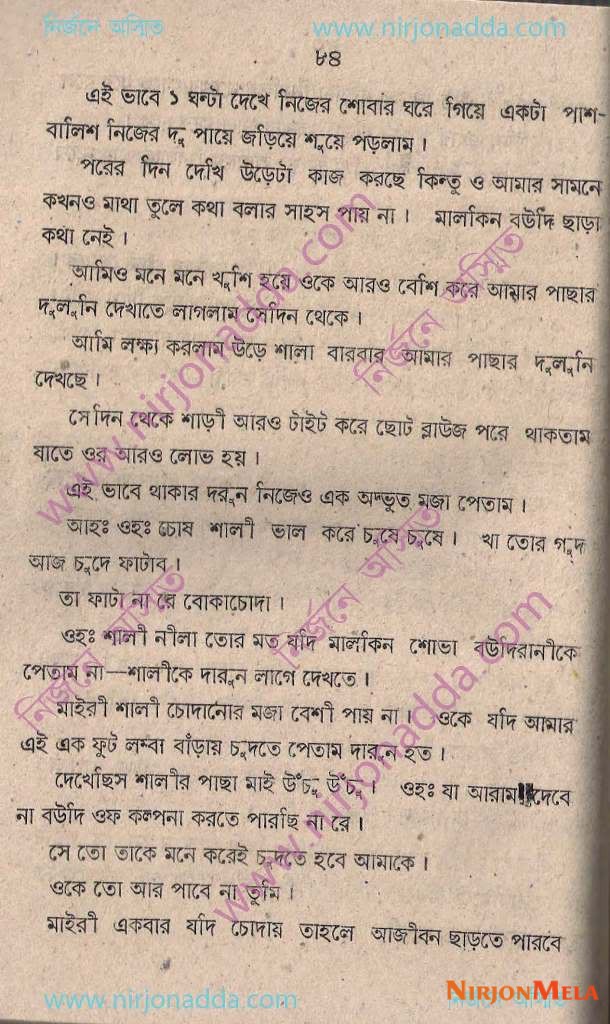 নির্জনে অস্মিত www.nirjonadda.com
৮৪
এই ভাবে ১ ঘন্টা দেখে নিজের শোবার ঘরে গিয়ে একটা পাশ-
বালিশ নিজের দু পায়ে জড়িয়ে শুয়ে পড়লাম।
পরের দিন দেখি উড়েটা কাজ করছে কিন্তু ও আমার সামনে
কখনও মাথা তুলে কথা বলার সাহস পায় না। মালকিন বউদি ছাড়া
কথা নেই।
আমিও মনে মনে খুশি হয়ে ওকে আরও বেশি করে আমার পাছার
দুলুনি দেখাতে লাগলাম সেদিন থেকে।
আমি লক্ষ্য করলাম উড়ে শালা বারবার আমার পাছার দুলুনি
দেখছে।
সেদিন থেকে শাড়ী আরও টাইট করে ছোট ব্লাউজ পরে থাকতাম
যাতে ওর আরও লোভ হয়।
এই ভাবে থাকার দরুন নিজেও এক অদ্ভুত মজা পেতাম।
আহঃ ওহঃ চোষ শালী ভাল করে চুষে চুষে। খা তোর গুদ
আজ চুদে ফাটাব।
তা ফাটা না রে বোকাচোদা।
ওহঃ শালী নীলা তোর মত যদি মালকিন শোভা বউদিরানীকে
পেতাম না—শালীকে দারুন লাগে দেখতে।
মাইরী শালী চোদানোর মজা বেশী পায় না। ওকে যদি আমার
এই এক ফুট লম্বা বাঁড়ায় চুদতে পেতাম দারুন হত।
দেখেছিস শালীর পাছা মাই উঁচু উঁচু। ওহঃ যা আরাম দেবে
না বউদি ওফ কল্পনা করতে পারছি না রে।
সে তো তাকে মনে করেই চুদতে হবে আমাকে।
ওকে তো আর পাবে না তুমি।
মাইরী একবার যদি চোদায় তাহলে আজীবন ছাড়তে পারবে
www.nirjonadda.com
নির্জনে অস্মিত
www.nirjonadda.com
নির্জনে অস্মিত
নির্জনে অস্মিত
www.nirjonadda.com
NIRJONMELA
www.nirjonadda.com নির্জনে অস্মিত